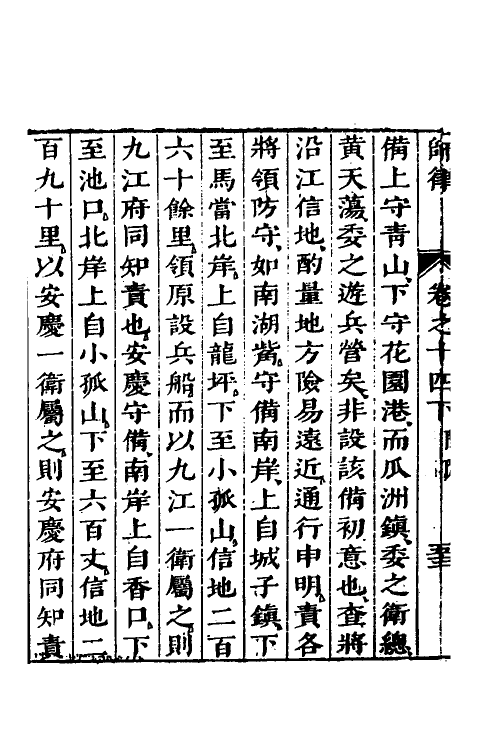 師律 卷之十四下 
備上守靑山、下守花園港、而瓜洲鎭、委之衛總、
黃天蕩、委之遊兵營矣、非設該備初意也、查將
沿江信地、酌量地方險易遠近、通行申明、責各
將領防守、如南湖觜、守備南岸、上自城子鎭、下
至馬當、北岸、上自龍坪、下至小孤山、信地二百
六十餘里、領原設兵船、而以九江一衛屬之、則
九江府同知責也、安慶守備、南岸上自香口、下
至池口、北岸上自小孤山、下至六百丈、信地二
百九十里、以安慶一衛屬之、則安慶府同知責